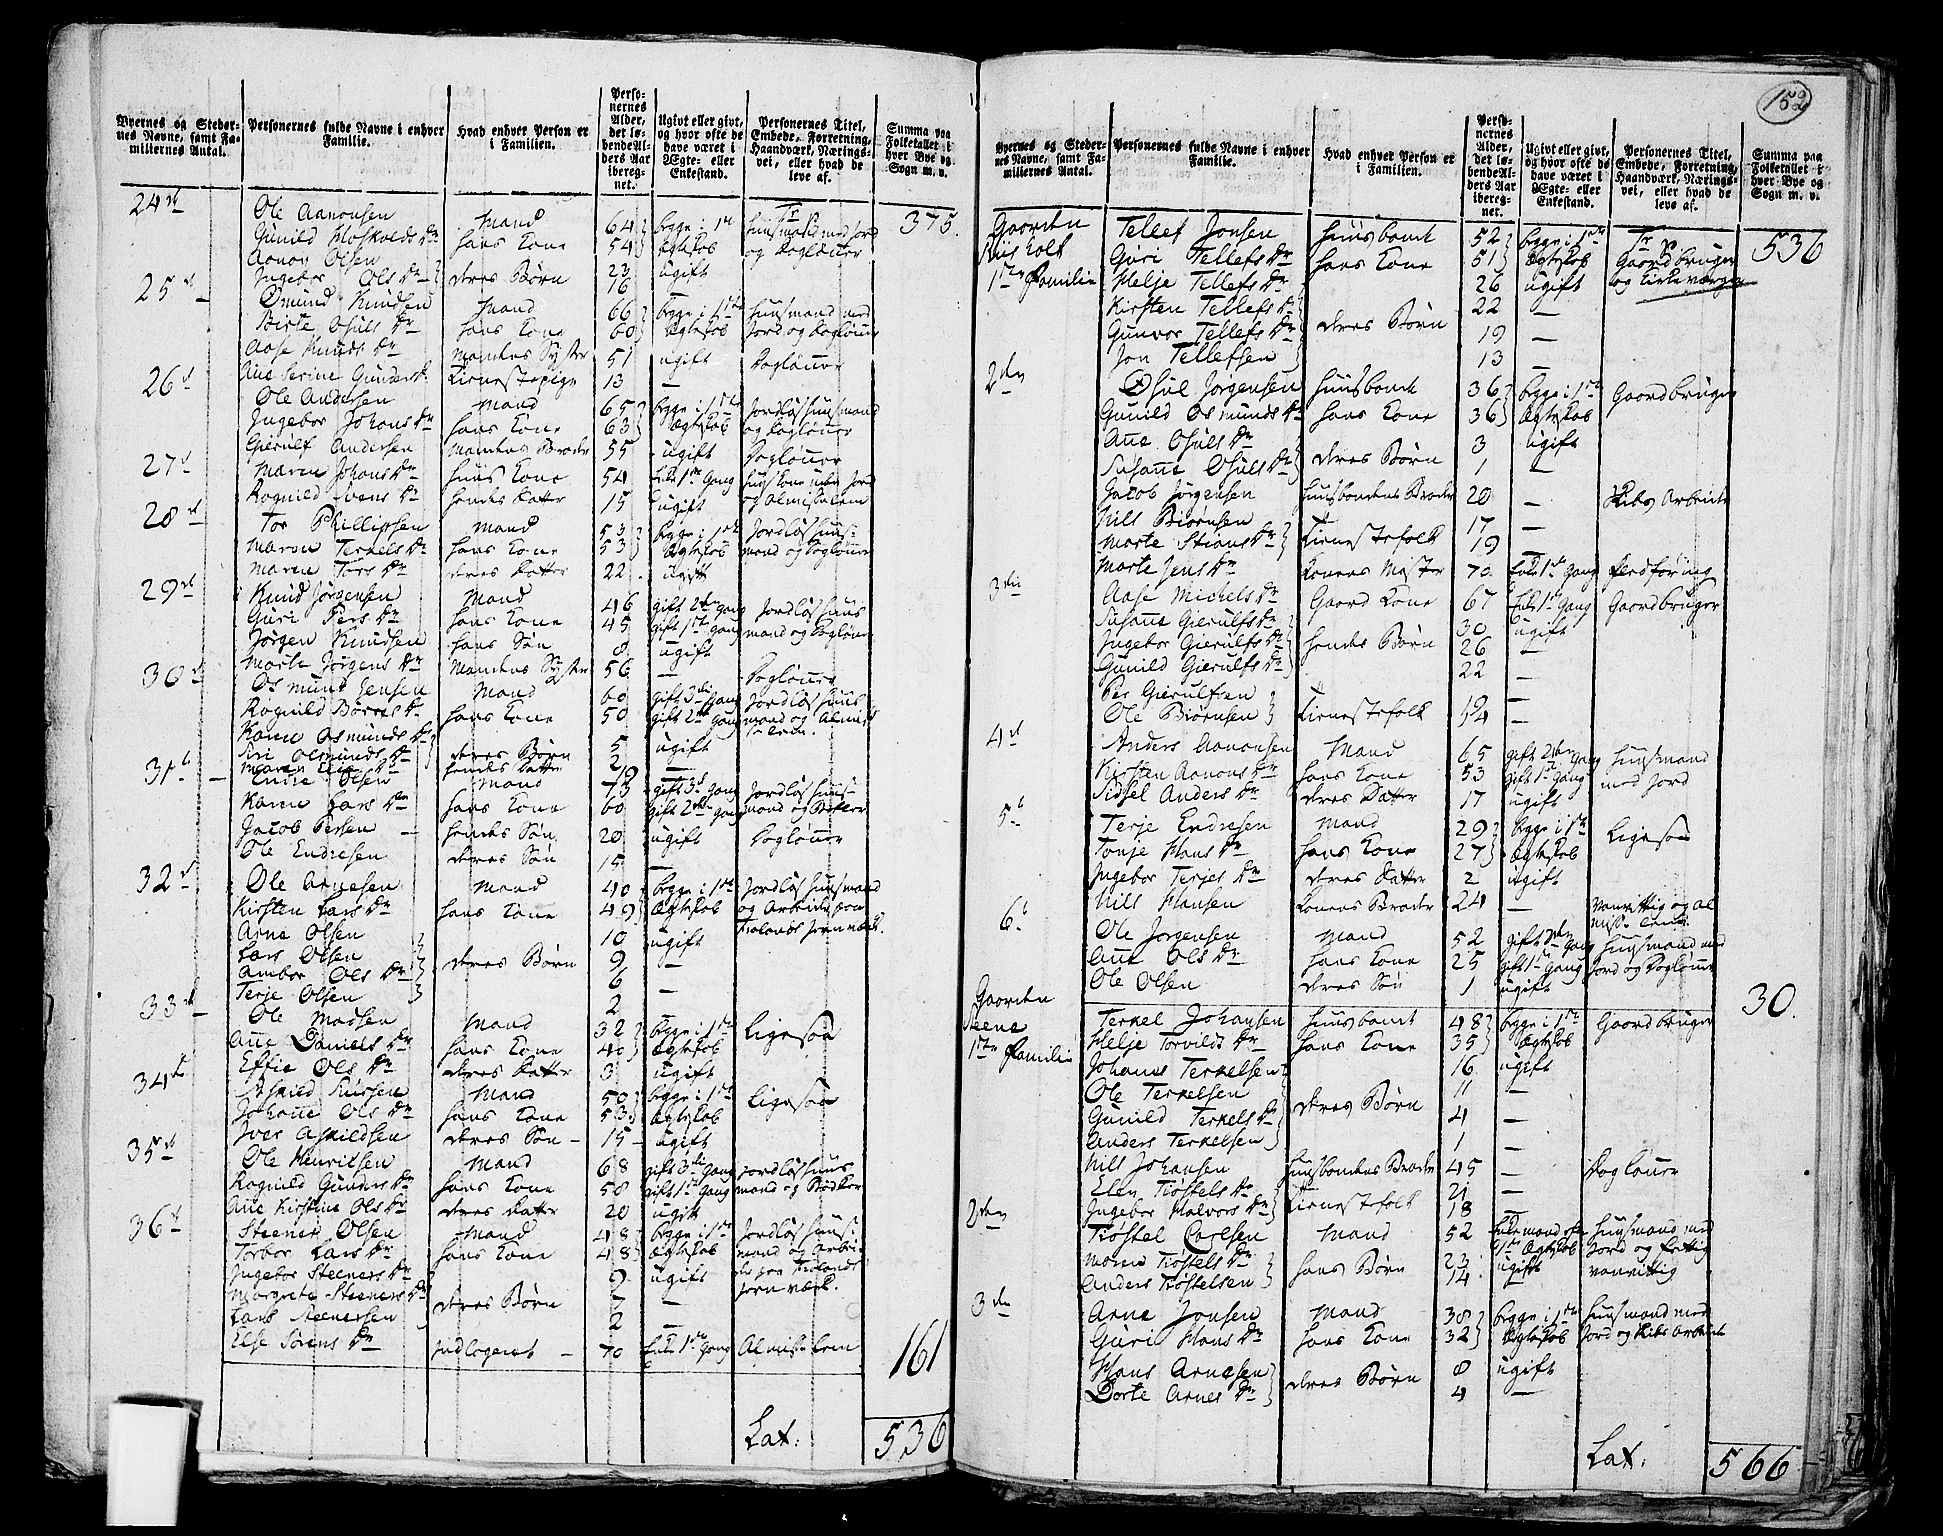 152
Byernes og Stedernes Navne, samt Familiernes Antal.
Personernes fulde Navne i enhver Familie.
Hvad enhver Person er i Familien.
Personernes Alder, det løbende Alders Aar iberegnet.
Ugivt eller givt, og hvor ofte de have været i Ægte- eller Enkestand.
Personernes Titel, Embede, Forretning, Haandværk, Næringsvei, eller hvad de leve af.
Summa paa Folketallet i hver Bye og Sogn m. v.
24de Ole Aanonsen Mand 64 begge i 1te huusmand med jord 375.
Gunild Aaskolds Dr hans Kone 54 Ægteskab og Dagløner
Aanon Olsen 23 ugift
Ingebor Ols Dr deres Børn 16 —
25de Osmund Knudsen Mand 66 begge i 1te huusmand med
Birte Osuls Dr hans Kone 60 Ægteskab Jord og Dagløner
Aase Knuds Dr Mandens Syster 51 ugift Dagløner
Ane Serine Gunders Dr Tienestepige 13 —
26de Ole Andersen Mand 65 begge i 1te Jordløs huusmand
Ingebor Johans Dr hans Kone 63 Ægteskab og Dagløner
Gierulf Andersen Mandens Broder 55 ugift Dagløner
27de Maren Johans Dr huus Kone 54 Enke 1te Gang huuskone uden Jord
Rognild Svens Dr hendes Datter 15 ugift og Almislem
28de Tor Phillipsen Mand 53 begge i 1te Jordløs huus-
Maren Terkels Dr hans Kone 53 Ægteskab mand og Dagløner
Maren Tors Dr deres Datter 22 ugift
29de Knud Jørgensen Mand 46 gift 2den Gang Jordløs huus
Guri Pers Dr hans Kone 45 gift 1te Gang mand og Dagløner
Jørgen Knudsen hans Søn 8 ugift
Marte Jørgens Dr Mandens Syster 56 — Dagløner
30de Osmund Jensen Mand 60 gift 3die Gang Jordløs huus
Rognild Børres Dr hans Kone 50 gift 2den Gang mand og Almis
Karen Osmunds Dr 5 ugift lem.
Siri Osmunds Dr deres Børn 2 —
Maren hendes Datter 19
31te Endre Olsen Mand 73 gift 3die Gang Jordløs huus-
Karen Lars Dr hans Kone 60 gift 2den Gang mand og Bødker
Jacob Persen hendes Søn 20 ugift Dagløner
Ole Endresen deres Søn 15 —
32te Ole Arnesen Mand 40 begge i 1te Jordløs huusmand
Kirsten Lars Dr hans Kone 49 Ægteskab og Arbeider paa
Arne Olsen 10 ugift Froelands Jernværk.
Lars Olsen deres Børn 9 —
Ambor Ols Dr 6
Terje Olsen 2 —
33te Ole Madsen Mand 32 begge i 1te Ligesaa
Ane Daniels Dr hans Kone 40 Ægteskab
Effie Ols Dr deres Datter 3 ugift
34de Askild Mand 50 begge i 1te Ligesaa
Johane Ols Dr hans Kone 53 Ægteskab
Iver Askildsen deres Søn 15 ugift
35te Ole Henricsen Mand 68 gift 3die Gang jordløs huus
Rognild Gunders Dr hans Kone 58 gift 1te Gang mand og Bødker
Ane Kirstine Ols Dr deres Datter 20 ugift
36te Steener Olsen Mand 48 begge i 1te Jordløs huus
Torbor Lars Dr hans Kone 48 Ægteskab mand og Arbei
Ingebor Steeners Dr 9 ugift der paa Froelands
Margrete Steeners Dr deres Børn 7 — jernværk.
Lars Steenersen 2 —
Else Sørens Dr Indlogeret 70 Enke 1te Gang Almislem 161
Lat: 536
Byernes og Stedernes Navne, samt Familiernes Antal.
Personernes fulde Navne i enhver Familie.
Hvad enhver Person er i Familien.
Personernes Alder, det løbende Alders Aar iberegnet.
Ugivt eller givt, og hvor ofte de have været i Ægte- eller Enkestand.
Personernes Titel, Embede, Forretning, Haandværk, Næringsvei, eller hvad de leve af.
Summa paa Folketallet i hver Bye og Sogn m. v.
Gaarden Tellef Jonsen Huusbond 52 begge i 1te Gaardbruger 536
Riisholt Guri Tellefs Dr hans Kone 51 Ægteskab og Kirkeværger
1te Familie Helje Tellefs Dr 26 ugift
Kirsten Tellefs Dr 22 —
Gunvor Tellefs Dr deres Børn 19 —
Jon Tellefsen 13 —
2den Osul Jørgensen huusbond 36 begge i 1te Gaardbruger
Gunild Osmunds Dr hans Kone 36 Ægteskab
Ane Osuls Dr 3 ugift
Susane Osuls Dr deres Børn 1 —
Jacob Jørgensen huusbondens Broder 20 — Skibs Arbeide
Nils Biørnsen 17 —
Marte Stians Dr Tienestefolk 19
Marte Jens Dr Konens Moster 70 Enke 1te Gang
3die Aase Michels Dr Gaard Kone 67 Enke 1te Gang Gaardbruger
Susane Gierulfs Dr 30 ugift
Ingebor Gierulfs Dr hendes Børn 26 —
Gunild Gierulfs Dr 22 —
Per Gierulfsen 19 —
Ole Biørnsen Tienestefolk 14 —
4de Anders Aanonsen Mand 65 gift 2den Gang huusmand
Kirsten Aanons Dr hans Kone 53 gift 1te Gang med Jord
Sidsel Anders Dr deres Datter 17 ugift
5te Terje Endresen Mand 29 begge i 1te Ligesaa
Tonje Hans Dr hans Kone 27 Ægteskab
Ingebor Terjes Dr deres Datter 2 ugift
Nils Hansen Konens Broder 24 — Vanvittig og Al
6te Ole Jørgensen Mand 52 gift 2den Gang huusmand med
Ane Ols Dr hans Kone 25 gift 1te Gang Jord og Dagløner
Ole Olsen deres Søn 1 ugift 30.
Gaarden Terkel Johansen huusbond 48 begge i 1te Gaardbruger
Steene Helje Torvilds Dr hans Kone 35 Ægteskab
1te Familie Johans Terkelsen 16 ugift
Ole Terkelsen 11 —
Gunild Terkels Dr deres Børn 4 —
Anders Terkelsen 1 —
Nils Johansen huusbondens Broder 45 — Dagløner
Elen Tiøstels Dr 21 —
Ingebor Halvors Dr Tienestefolk 18 —
2den Tiøstel Carlsen Mand 52 Enkemand efter huusmand med
Maren Tiøstels Dr 23 1te Ægteskab Jord og
Anders Tiøstelsen hans Børn 14 ugift vanvittig
3die Arne Jonsen Mand 38 begge i 1te huusmand med
Guri Hans Dr hans Kone 32 Ægteskab Jord og Skibs Arbeide
Hans Arnesen 8 ugift
Dorte Arnes Dr deres Børn 4 —
Lat: 566